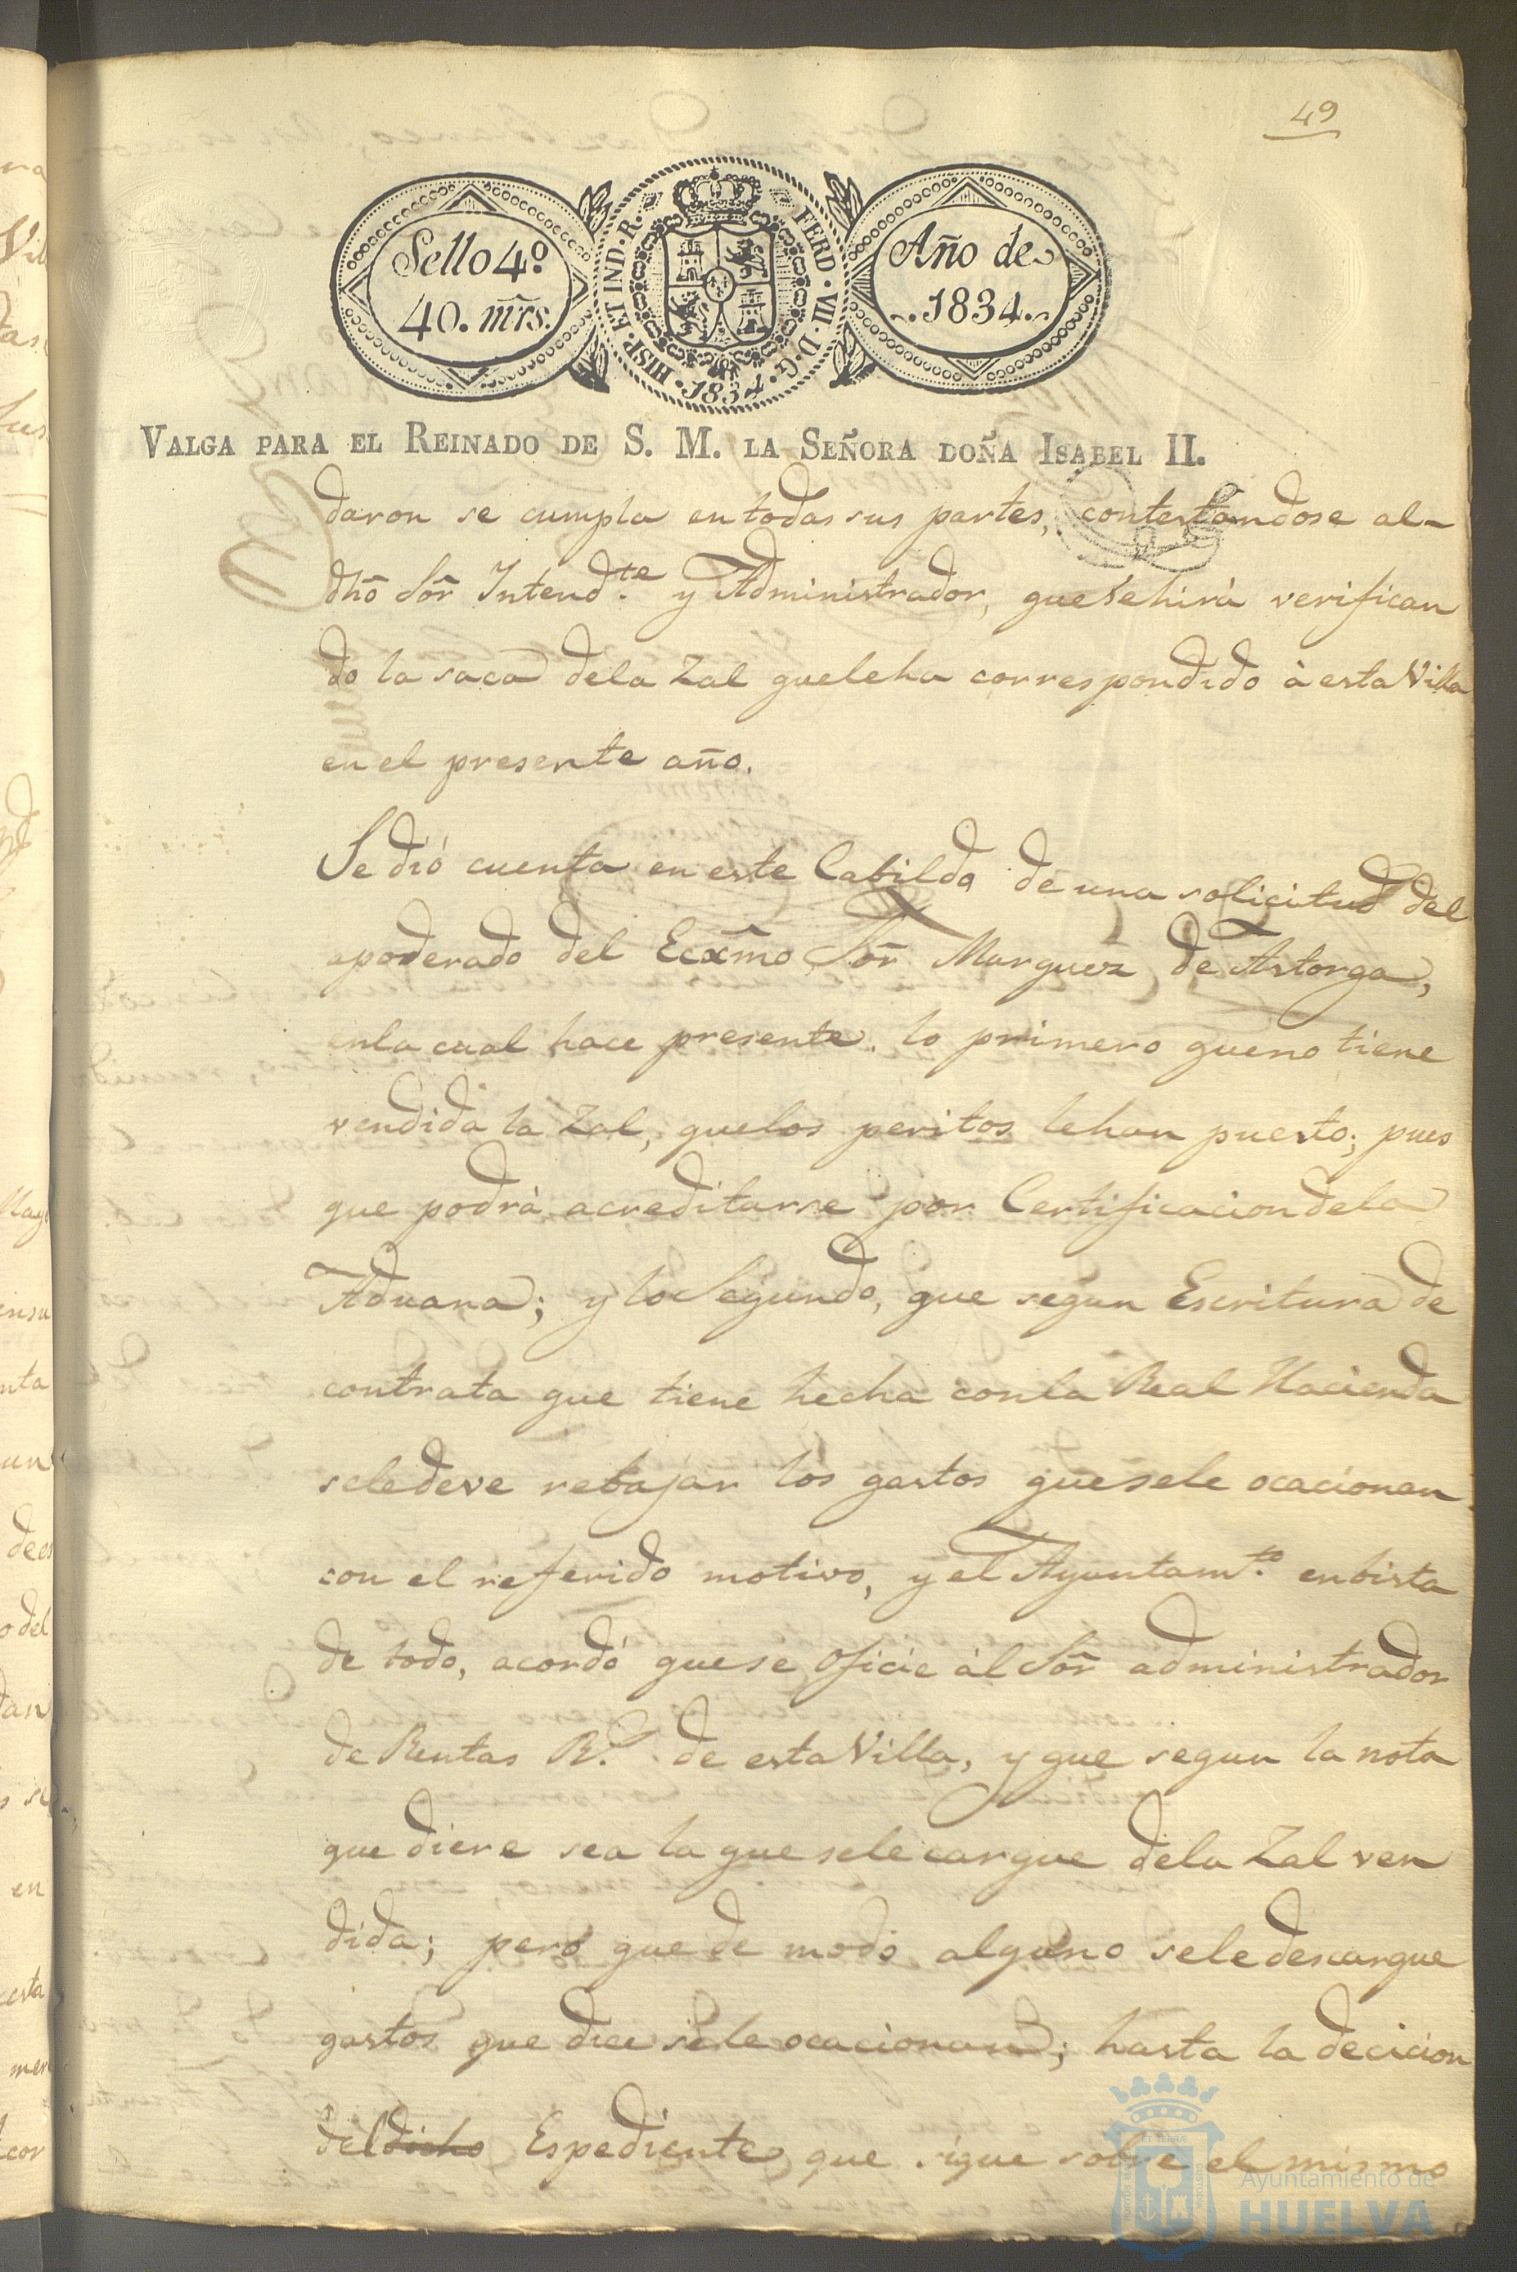 49
Sello 4º
40. mrs.
HISP · ET IND · R.
FERD · VII · D · G · 1834 ·
Año de
1834.
VALGA PARA EL REINADO DE S. M. LA SEÑORA DOÑA ISABEL II.
daron se cumpla en todas sus partes, contestandose al-
dhõ Sõr Intend.te y Administrador, que se hirà verifican
do la saca dela Zal que le ha correspondido à esta Villa
en el presente año.
Se dió cuenta en este Cabildo de una solicitud del
apoderado del Ecxm̃o Sõr Marquez de Astorga,
en la cual hace presente. lo primero que no tiene
vendida la Zal, que los peritos le han puesto; pues
que podrà acreditarse por Certificacion dela
Aduana; y lo Segundo, que segun Escritura de
contrata que tiene hecha con la Real Hacienda
se le deve rebajar los gastos que se le ocacionan
con el referido motivo, y el Ayuntam.to en bista
de todo, acordó que se oficie àl Sõr administrador
de Rentas R.s de esta Villa, y que segun la nota
que diere sea la que se le cargue dela Zal ven
dida; pero que de modo alguno se le descargue
gastos que dice se le ocacionan; hasta la decicion
del dicho Espediente que sigue sobre el mismo
Ayuntamiento de
HUELVA